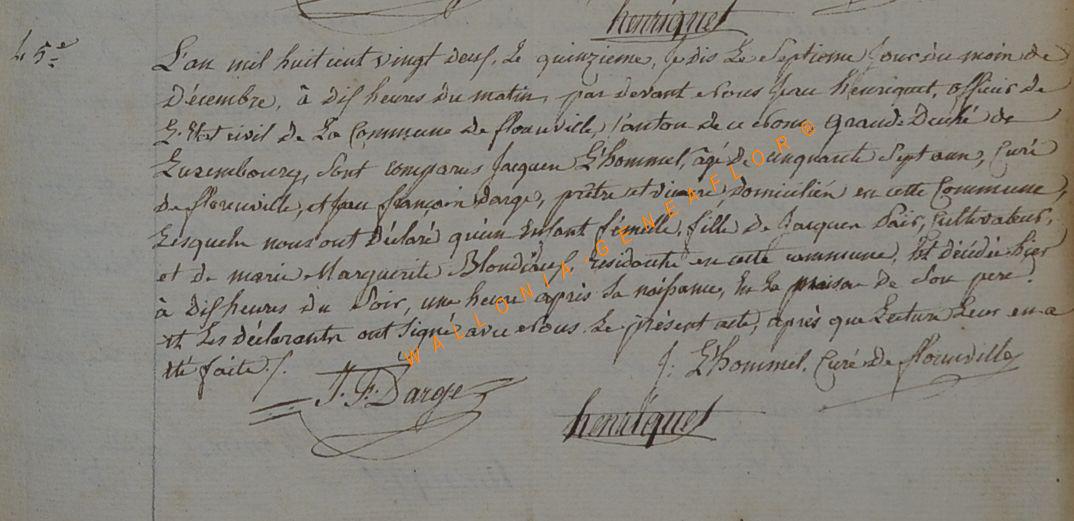 henriquet
45e
L'an mil huit cent vingt deux, le quinzieme, je dis le septieme jour du mois de
Décembre, à dix heures du matin, par devant nous Jean Henriquet, officier de
l'Etat civil de la Commune de florenville, Canton de ce nom Grand Duché de
Luxembourg, sont comparus Jacques L'hommel, agé de cinquante sept ans, Curé
de florenville, et Jean françois Darge, prêtre et vicaire, domiciliés en cette Commune,
Lesquels nous ont Déclaré qu'un Enfant fémelle, fille de Jacques Soir, Cultivateur,
et de marie Marguerite résidants en cette commune, Est décédée hier
à dix heures du soir, une heure après sa naissance, En la maison de son pere.
Et Les Déclarants ont signé avec nous Le présent acte, après que Lecture leur en a
été faite /.
J: L'hommel, Curé de florenville
J. F. Darge
henriquet
WALLONIA-GENEAFLOR®